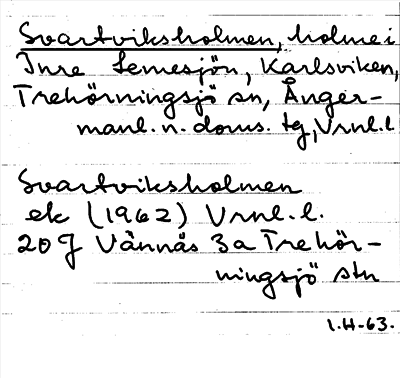 Svartviksholmen, holme i
Inre Lemesjön, Karlsviken,
Trehörningsjö sn, Ånger-
manl. n. doms. tg, Vrnl. l
Svartviksholmen
ek (1962) Vrnl. l.
20 J Vännäs 3a Trehör-
ningsjö stn
1.H-63.